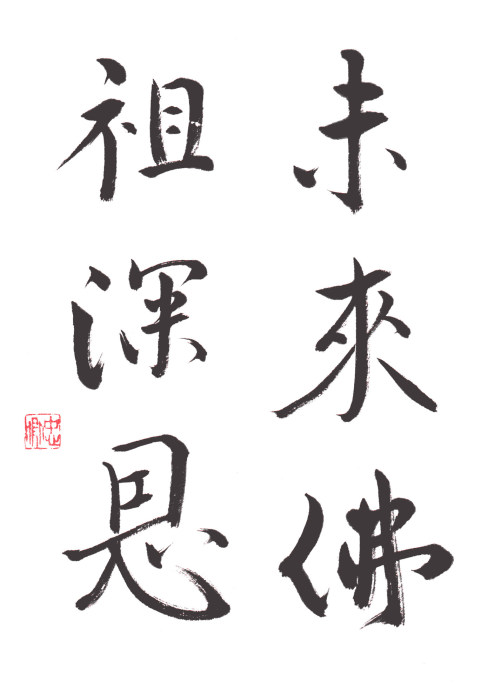 未來佛
祖深恩